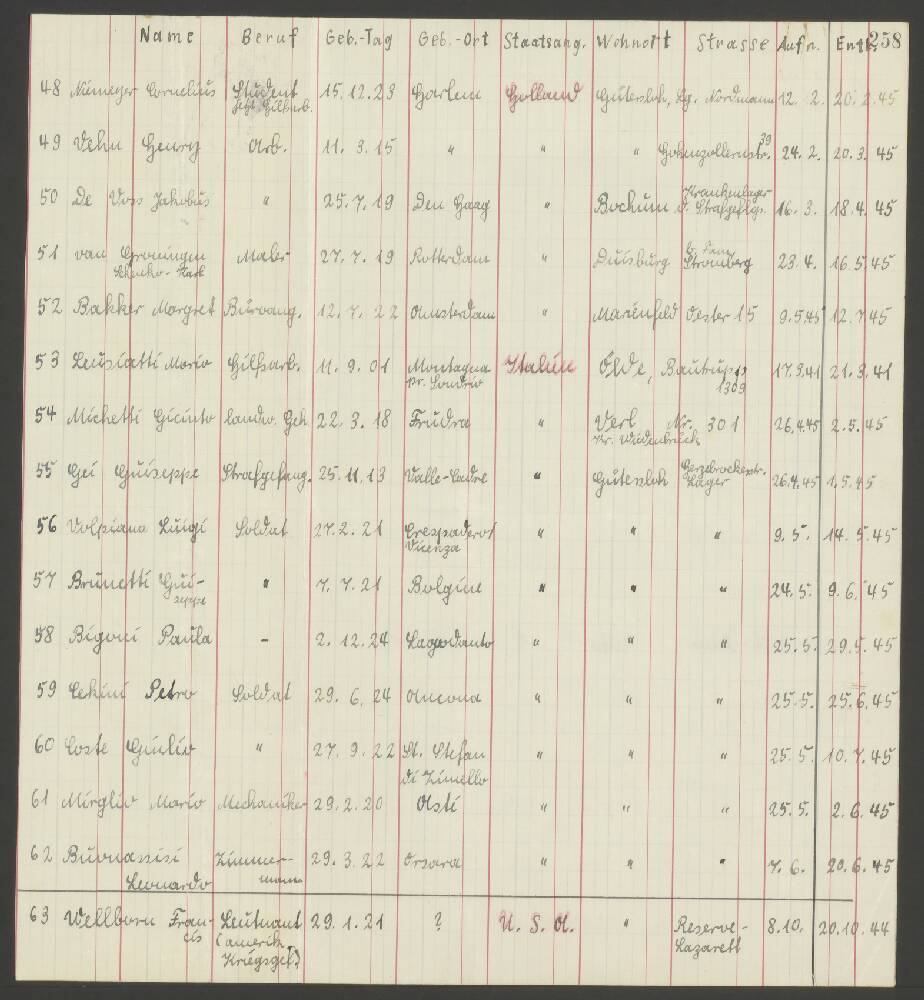 Name Beruf Geb.-Tag Geb.-Ort Staatsang. Wohnort Strasse Aufn. Entl. 258
48 Niemeyer Cornelius Student 15.12.23 Harlem Holland Gütersloh, Lg. Nordmann 12. 2. 20. 2.45
jetzt Hilfsarb.
39
49 Vehn Henry Arb. 11. 3. 15 " " " Hohenzollernstr. 24. 2. 20. 3. 45
Krankenlager
50 De Voss Jakobus " 25. 7. 19 Den Haag " Bochum d. Strafgeflgs. 16. 3. 18. 4. 45
51 van Groningen Maler 27. 7. 19 Rotterdam " Duisburg Stromberg 23. 4. 16. 5. 45
52 Bakker Margret Büroang. 12. 7. 22 Amsterdam " Marienfeld Oester 15 9.5.45 12. 7 45
53 Leusiatti Mario Hilfsarb. 11. 9. 01 Montagna Italien Ölde, Bautrup 17.3.41 21. 3. 41
pr. Sondrio 1303
54 Michetti Gicinto landw. Geh. 22. 3. 18 Frudra " Verl Nr. 301 26.4.45 2. 5. 45
Kr. Wiedenbrück
55 Gei Guiseppe Strafgefang. 25. 11. 13 Valle-Cadre " Gütersloh Herzebrockerstr. 26.4.45 1. 5. 45
Lager
56 Volpiana Luigi Soldat 27. 2. 21 Crespadoro/ " " " 9. 5. 14. 5. 45
Vicenza
57 Brunetti Gui- " 7. 7. 21 Bolgine " " " 24. 5. 9. 6. 45
seppe
58 Bigoni Paula - 2. 12. 24 Lagodanto " " " 25. 5. 29. 5. 45
59 Cekini Petro Soldat 29. 6. 24 Ancona " " " 25. 5. 25. 6. 45
60 Coste Giulio " 27. 9. 22 St. Stefan " " " 25. 5. 10. 7. 45
di Zimello
61 Mirglio Mario Mechaniker 29. 2. 20 Asti " " " 25. 5. 2. 6. 45
62 Buonassisi Zimmer- 29. 3. 22 Orsara " " " 7. 6. 20. 6. 45
Leonardo mann
63 Wellborn Fran- Leutnant 29. 1. 21 ? U. S. A. " Reserve- 8.10. 20. 10. 44
cis (amerik. Lazarett
Kriegsgef.)